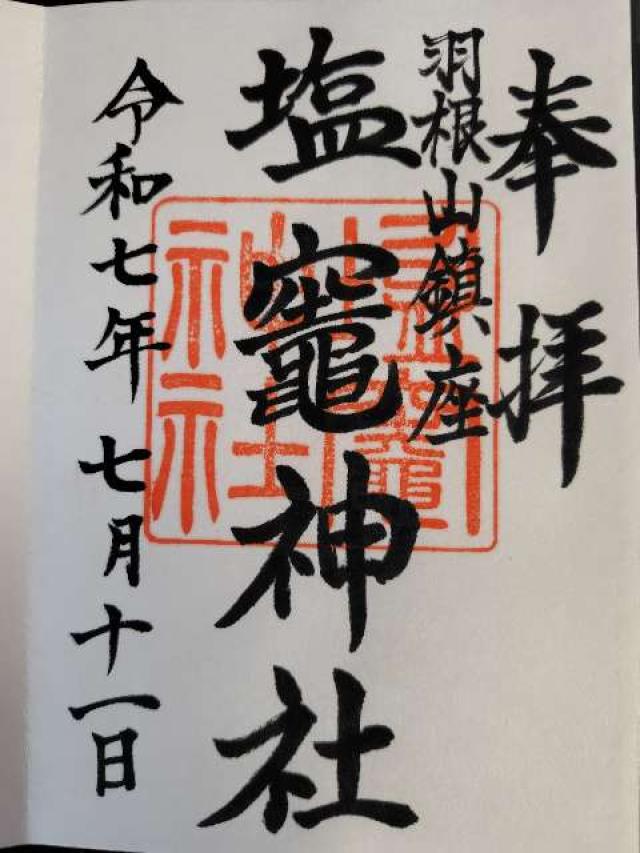 奉拝
羽根山鎮座
塩竈神社
令和七年七月十一日
塩竈
神社